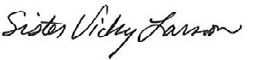 Sister Vicky Larson